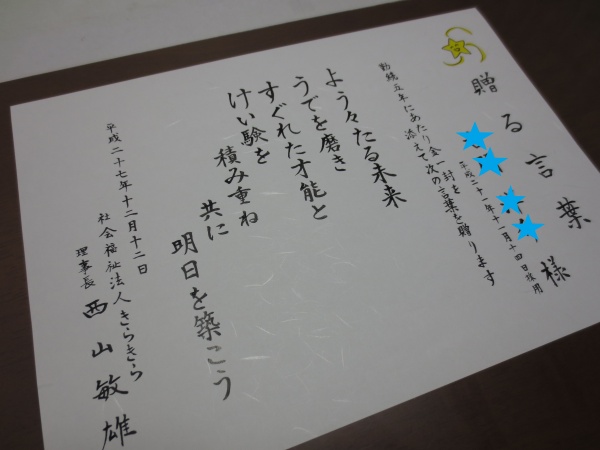 贈る言葉
様
平成二十一年十一月十四日採用
勤続五年にあたり金一封を
添えて次の言葉を贈ります
よう々たる未来
うでを磨き
すぐれた才能と
けい験を
積み重ね
共に
明日を築こう
平成二十七年十二月十二日
社会福祉法人きらきら
理事長 西山敏雄